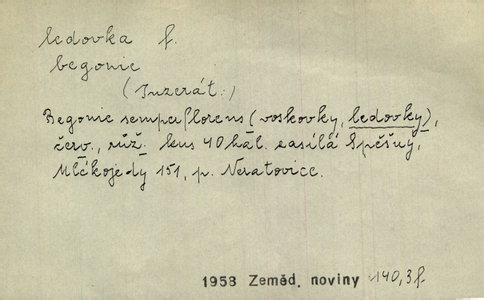 ledovka f.
begonie
(Inzerát:)
Begonie semperflorens (voskovky, ledovky),
červ., růž. kus 40 hal. zasílá Spěšný,
Mlčkojedy 151, p. Neratovice.
1958 Zeměd. noviny 140,3f.